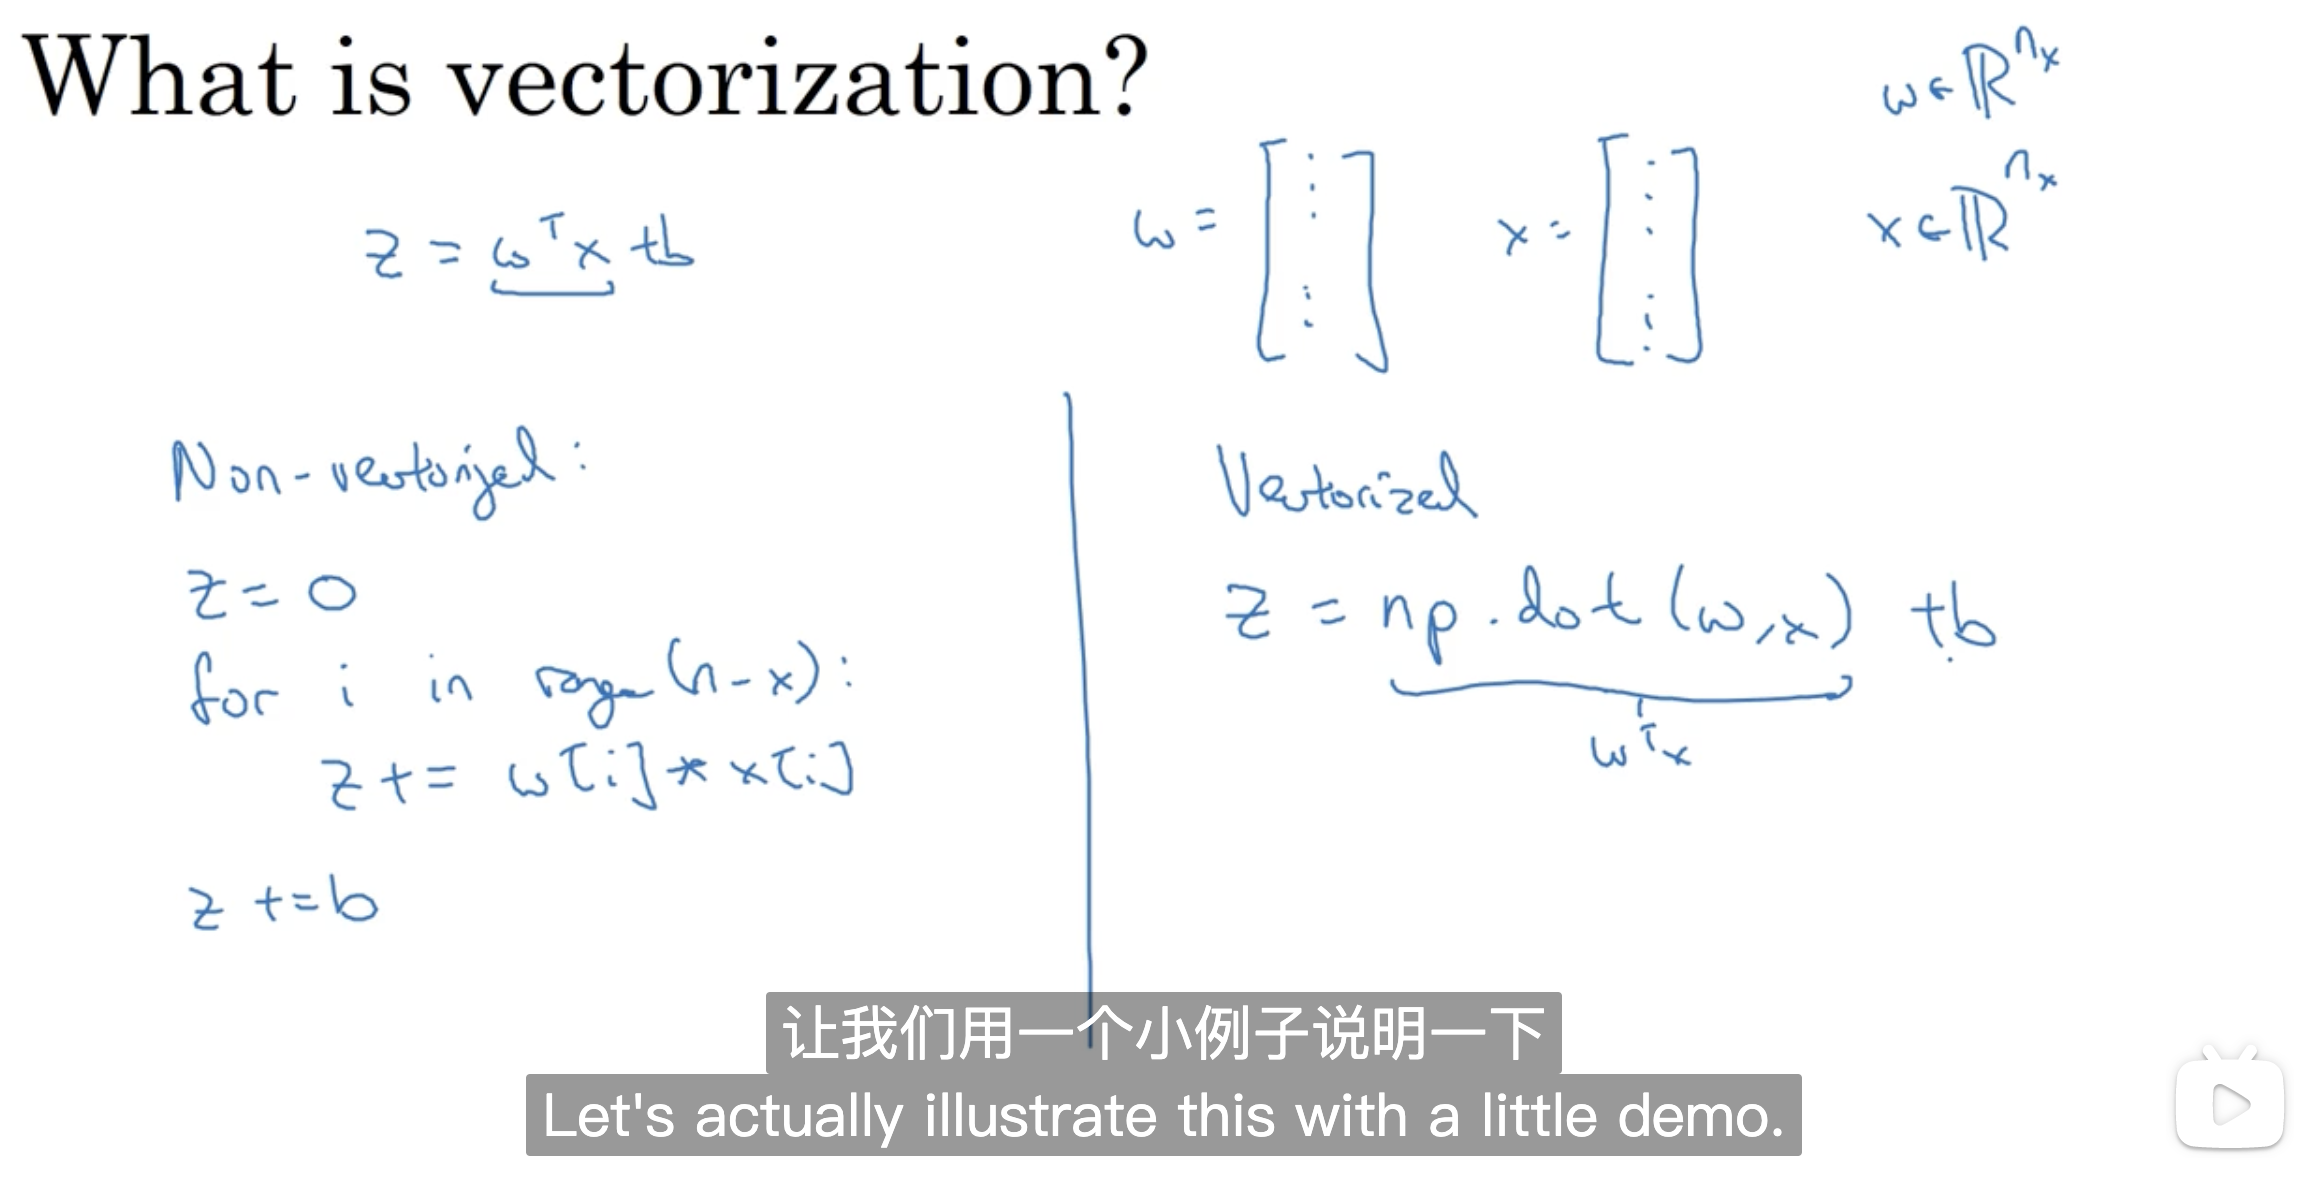 What is vectorization?
z = wᵀx + b
w = [⋮ ⋮]
x = [⋮ ⋮]
w ∈ ℝⁿˣ
x ∈ ℝⁿˣ
Non-vectorized:
z = 0
for i in range(n-x):
z += w[i] * x[i]
z += b
Vectorized
z = np.dot(w,x) + b
wᵀx
让我们用一个小例子说明一下
Let's actually illustrate this with a little demo.